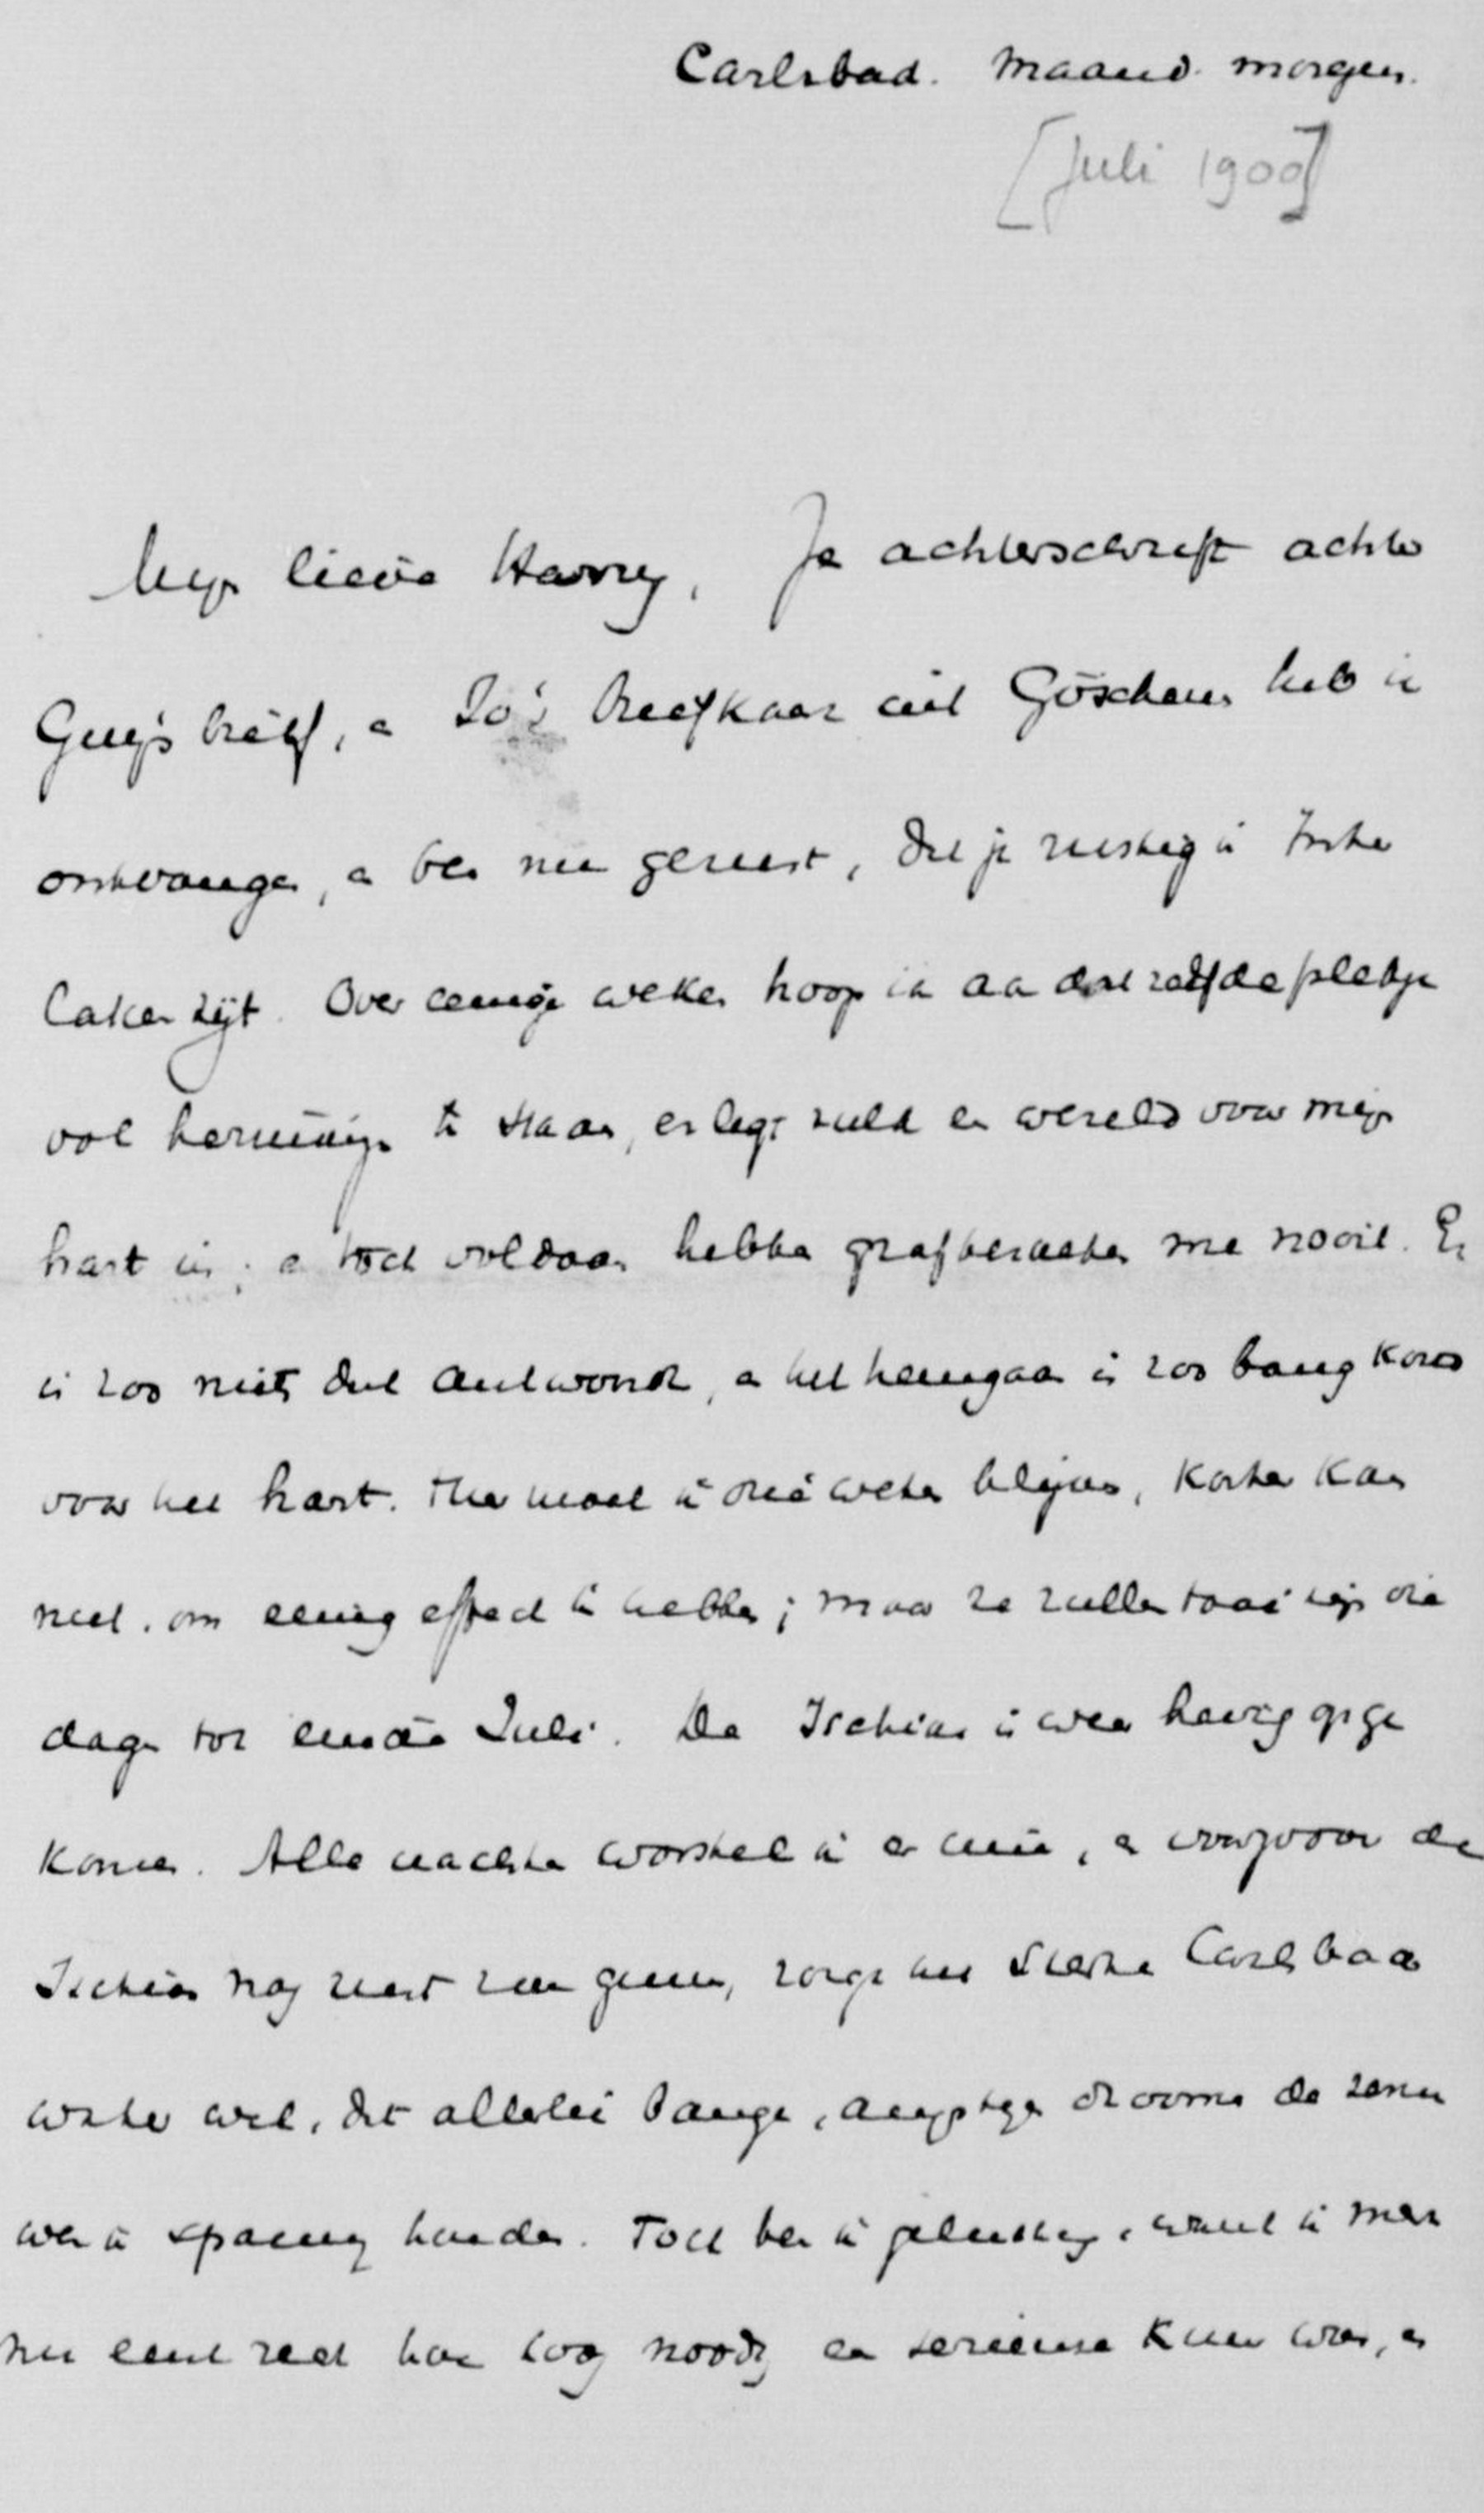 Carlsbad. Maand. morgen.
[Juli 1900]
Mijn lieve Harry, Je achterschrift achter
Guy's brief, en Jo's briefkaart uit Göschenen heb ik
ontvangen, en ben nu gerust, dat je rustig in Inter
laken zijt. Over eenige weken hoop ik aan datzelfde plekje
vol herinnering te staan, er ligt zulk een wereld voor mijn
hart in; en toch voldaan hebben grafbezoeken me nooit. Er
is zoo niets dat antwoordt, en het heengaan is zoo bang koud
voor het hart. Hier moet ik drie weken blijven, korter kan
niet, om eenig effect te hebben; maar ze zullen taai zijn die
dagen tot einde Juli. De Ischias is weer hevig opge
komen. Alle nachten worstel ik er mee, en voorzoover de
Ischias nog rust zou gunnen, zorgt het sterke Carlsbad
water wel, dat allerlei bange, angstige droomen de zenu
wen in spanning houden. Toch ben ik gelukkig, want ik merk
nu eerst recht hoe hoog noodig een serieuse kuur was, en